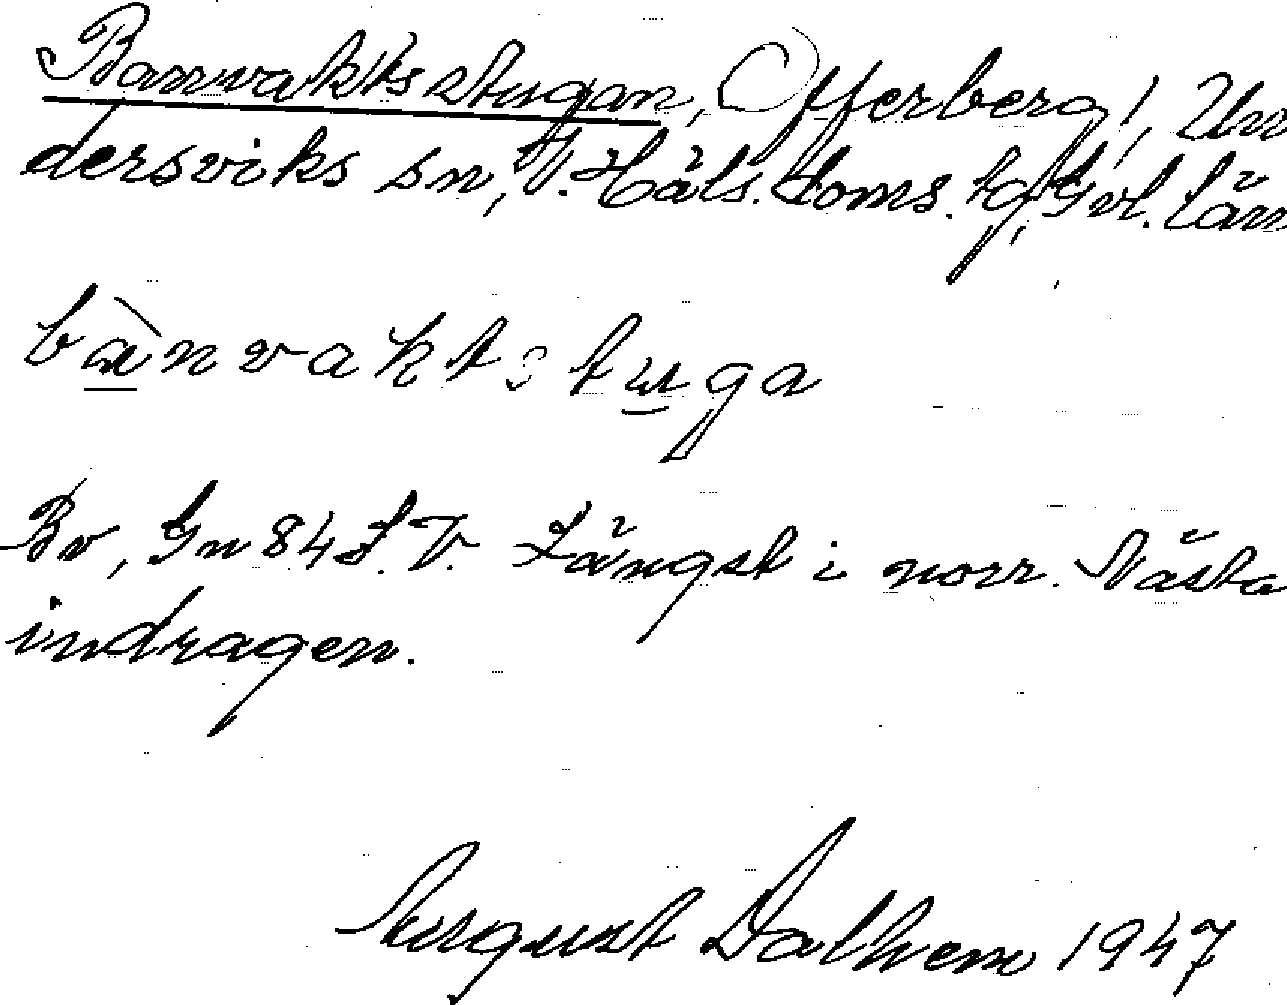 Banvaktsstugan, Offerberg!, Un
dersviks sn, V. Häls. doms. tg, Gvl. län
bànvaktstuga
Bv, Gn 84 S.V. Längst i norr. Nästa
indragen.
August Dalhem 1947